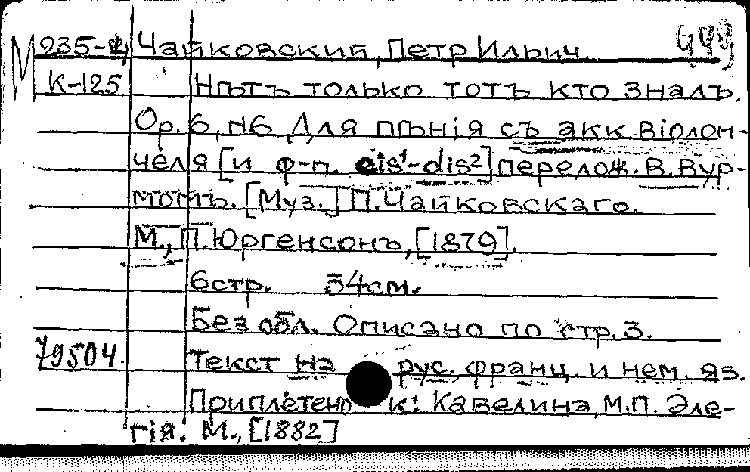 М 935-4 Чайковский, Петр Ильич 449
К-125 Нѣтъ только тотъ кто зналъ.
Op. 6, №6 Для пѣнія съ акк. віолон-
челя [и ф-п. cis¹-dis²] перелож. В. Вур-
момъ. [Муз.] П. Чайковскаго.
М., П. Юргенсонъ, [1879].
6 стр. 34 см.
Без обл. Описано по стр. 3.
79504. Текст на рус. франц. и нем яз.
Приплетено к: Кавелина, М.П. Эле-
гія. М., [1882]